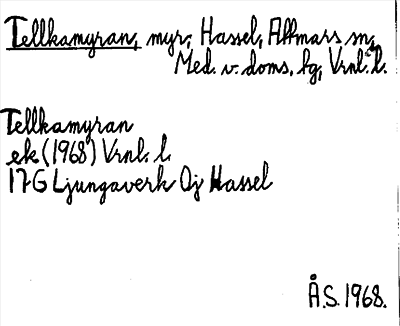 Tellkamyran, myr, Hassel, Attmars sn,
Med. v. doms. hg, Vrnl. l.
Tellkamyran
ek (1968) Vrnl. l.
17G Ljungaverk Oj Hassel
Å.S. 1968.